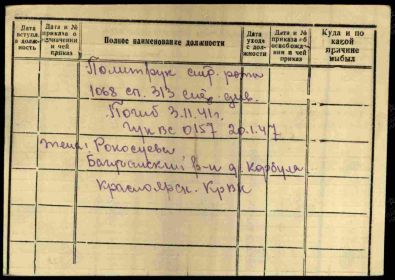 Дата вступ. в должность
Дата и № приказа о назначении и чей приказ
Полное наименование должности
Дата ухода с должности
Дата и № приказа об освобожден. и чей приказ
Куда и по какой причине выбыл
Политрук стр. роты
1068 сп. 313 стр. див.
Погиб 3.11.41г.
гук ВС 0157 20.1.47
жена:
р-н д. Корбула
Красноярск. кр